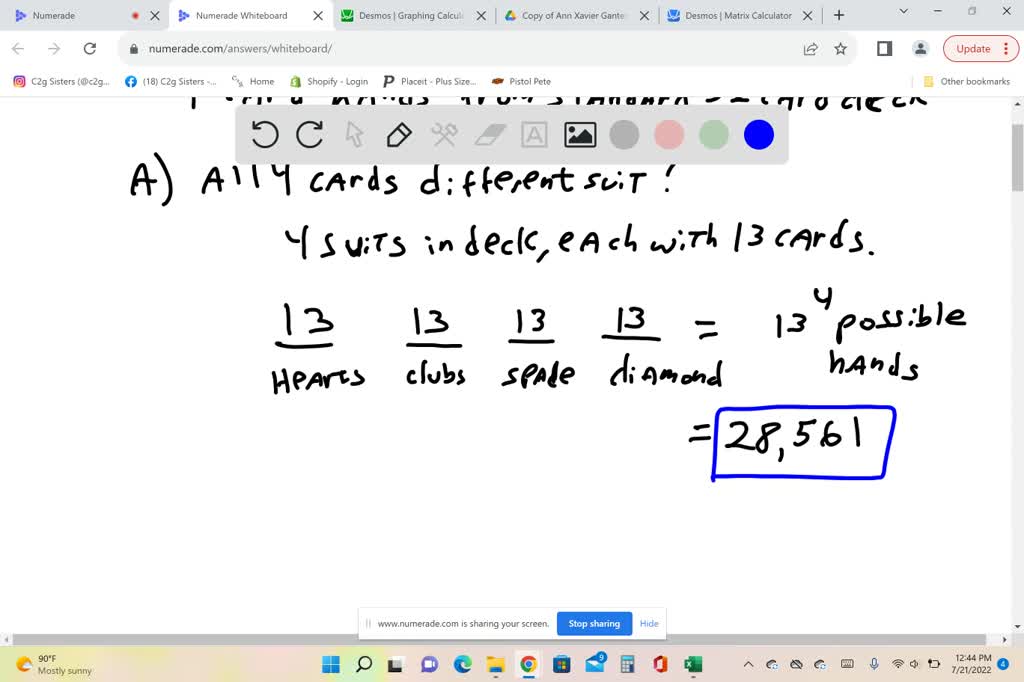 Numerade
Numerade Whiteboard
Desmos | Graphing Calcul
Copy of Ann Xavier Gante
Desmos | Matrix Calculator
numerade.com/answers/whiteboard/
Update
C2g Sisters (@c2g...
(18) C2g Sisters -...
Home
Shopify - Login
Placeit - Plus Size...
Pistol Pete
Other bookmarks
A) All 4 cards different suit?
4 suits in deck, each with 13 cards.
13 13 13 13 = 13^4 possible
Hearts clubs spade diamond hands
= 28,561
www.numerade.com is sharing your screen.
Stop sharing
Hide
90°F
Mostly sunny
9
12:44 PM
7/21/2022
4